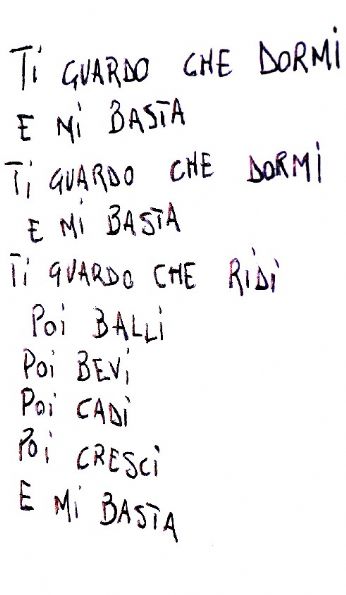 Ti GUARDO CHE DORMi
E Mi BASTA
Ti GUARDO CHE DORMi
E Mi BASTA
Ti GUARDO CHE RiDi
Poi BALLi
Poi BEVi
Poi CADi
Poi CRESCi
E Mi BASTA